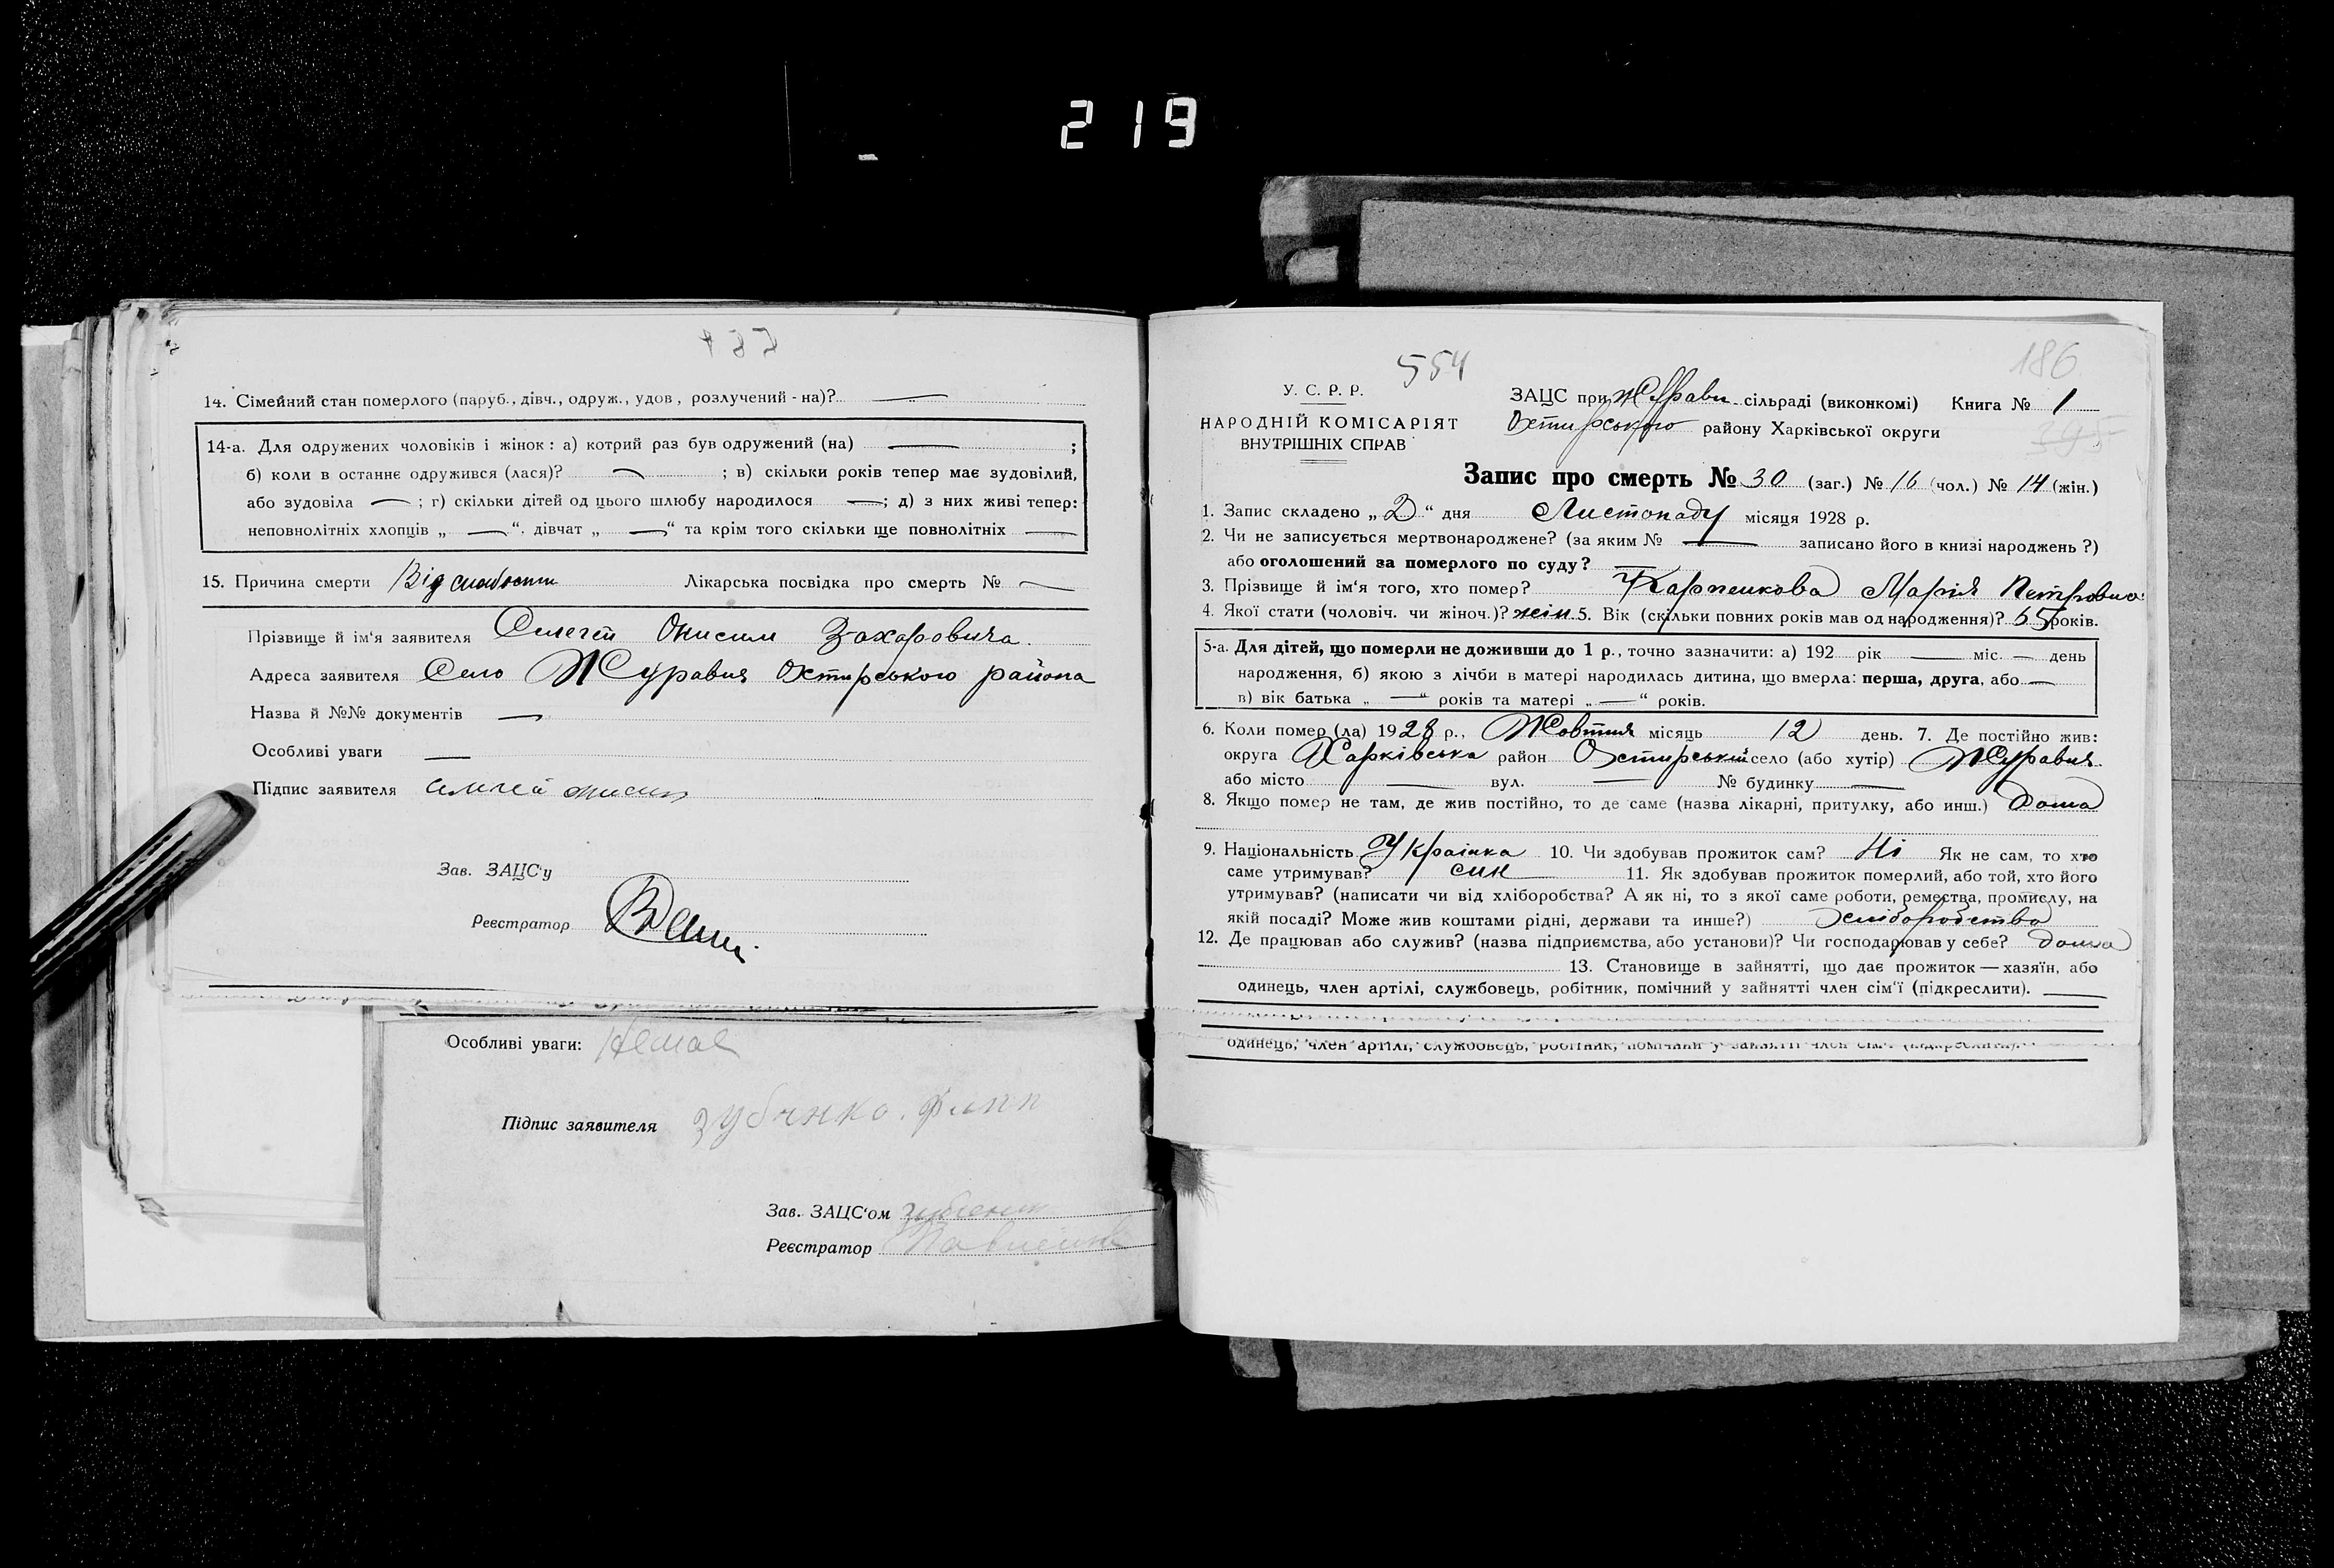 219
14. Сімейний стан померлого (паруб., дівч., одруж., удов, розлучений-на)? —
14-а. Для одружених чоловіків і жінок: а) котрий раз був одружений (на) — ;
б) коли в останнє одружився (лася)? — ; в) скільки років тепер має зудовілий,
або зудовіла — ; г) скільки дітей од цього шлюбу народилося — ; д) з них живі тепер:
неповнолітніх хлопців „ — “, дівчат „ — “ та крім того скільки ще повнолітніх —
15. Причина смерти Від слабости Лікарська посвідка про смерть № —
Прізвище й ім'я заявителя Онисим Захарович
Адреса заявителя Село Журавня Охтирського района
Назва й №№ документів —
Особливі уваги —
Підпис заявителя
Зав. ЗАЦС'у
Реєстратор
Особливі уваги: Немає
Підпис заявителя
Зав. ЗАЦС'ом
Реєстратор
554
186
У. С. Р. Р.
НАРОДНІЙ КОМІСАРІЯТ
ВНУТРІШНІХ СПРАВ
ЗАЦС при Журавн. сільраді (виконкомі) Книга № 1
Охтирського району Харківської округи
Запис про смерть № 30 (заг.) № 16 (чол.) № 14 (жін.)
1. Запис складено „2“ дня Листопаду місяця 1928 р.
2. Чи не записується мертвонароджене? (за яким № — записано його в книзі народжень?)
або оголошений за померлого по суду? —
3. Прізвище й ім'я того, хто помер? Карпенкова Марія Петровна
4. Якої стати (чоловіч. чи жіноч.)? жін. 5. Вік (скільки повних років мав од народження)? 65 років.
5-а. Для дітей, що померли не доживши до 1 р., точно зазначити: а) 192 рік — міс. — день
народження, б) якою з лічби в матері народилась дитина, що вмерла: перша, друга, або —
в) вік батька „ — “ років та матері „ — “ років.
6. Коли помер (ла) 1928 р., Жовтня місяць 12 день. 7. Де постійно жив:
округа Харківська район Охтирський село (або хутір) Журавня
або місто — вул. — № будинку —
8. Якщо помер не там, де жив постійно, то де саме (назва лікарні, притулку, або инш.) Дома
9. Національність Українка 10. Чи здобував прожиток сам? Ні Як не сам, то хто
саме утримував? син 11. Як здобував прожиток померлий, або той, хто його
утримував? (написати чи від хліборобства? А як ні, то з якої саме роботи, ремества, промислу, на
якій посаді? Може жив коштами рідні, держави та инше?) Хліборобство
12. Де працював або служив? (назва підприємства, або установи)? Чи господарював у себе? дома
13. Становище в зайнятті, що дає прожиток — хазяїн, або
одинець, член артілі, службовець, робітник, помічний у зайнятті член сім'ї (підкреслити). —
одинець, член артілі, службовець, робітник, помічний у зайнятті член сім'ї (підкреслити).